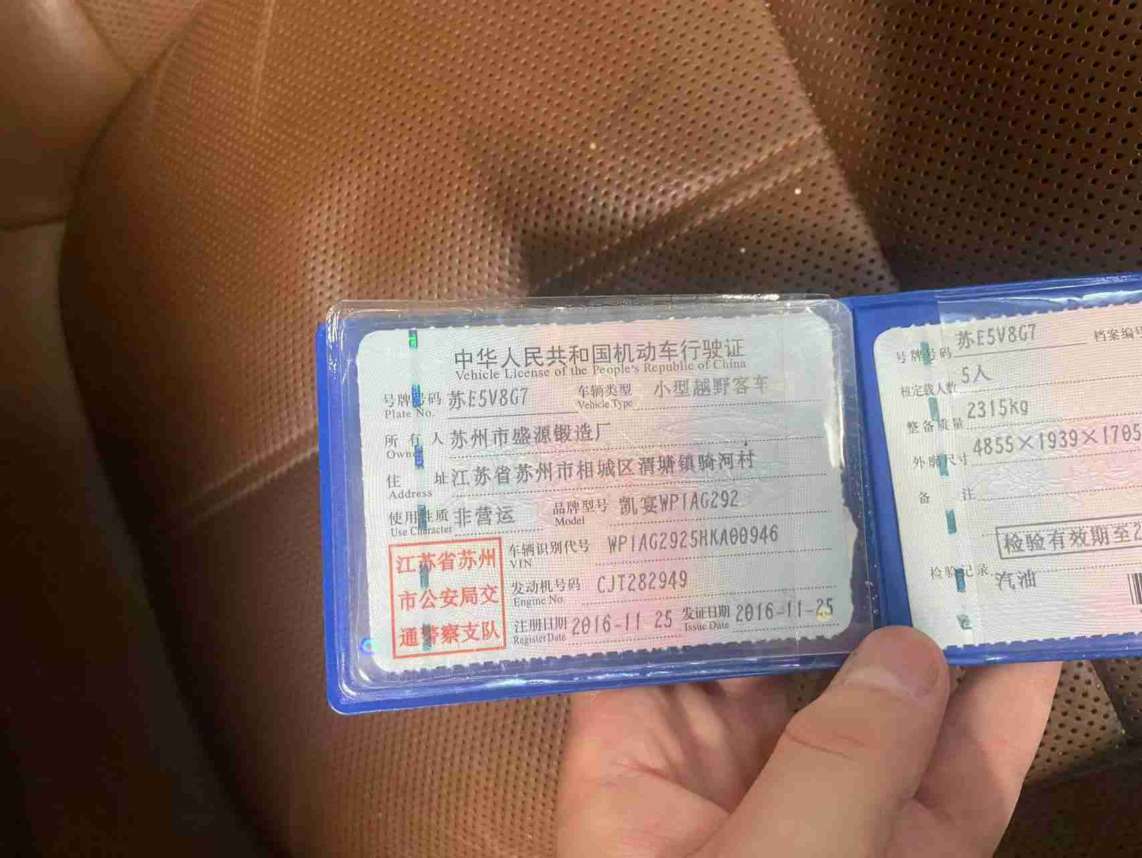 中华人民共和国机动车行驶证
Vehicle License of the People's Republic of China
号牌号码 苏E5V8G7 车辆类型 小型越野客车
Plate No. Vehicle Type
所有人 苏州市盛源锻造厂
Owner
住址 江苏省苏州市相城区渭塘镇骑河村
Address
使用性质 非营运 品牌型号 凯宴WP1AG292
Use Character Model
江苏省苏州
市公安局交
通警察支队
车辆识别代号 WP1AG2925HKA00946
VIN
发动机号码 CJT282949
Engine No.
注册日期 2016-11-25 发证日期 2016-11-25
Register Date Issue Date
号牌号码 苏E5V8G7 档案编号
核定载人数 5人
整备质量 2315kg
外廓尺寸 4855×1939×1705
备注
检验有效期至2
检验记录
汽油